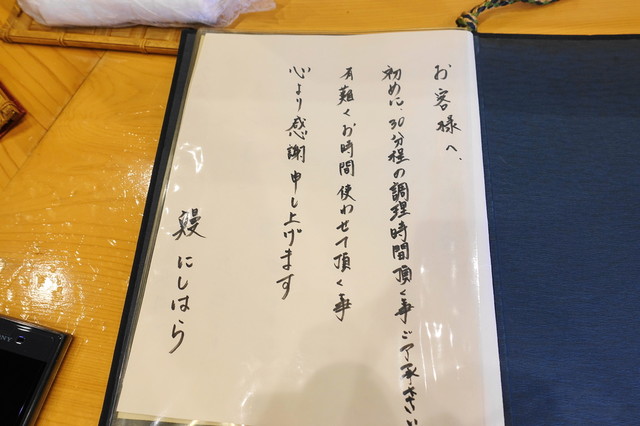 お客様へ、
初めに、30分程の調理時間頂く事ご了承さい
有難くお時間使わせて頂く事
心より感謝申し上げます
鰻 にしはら
SONY